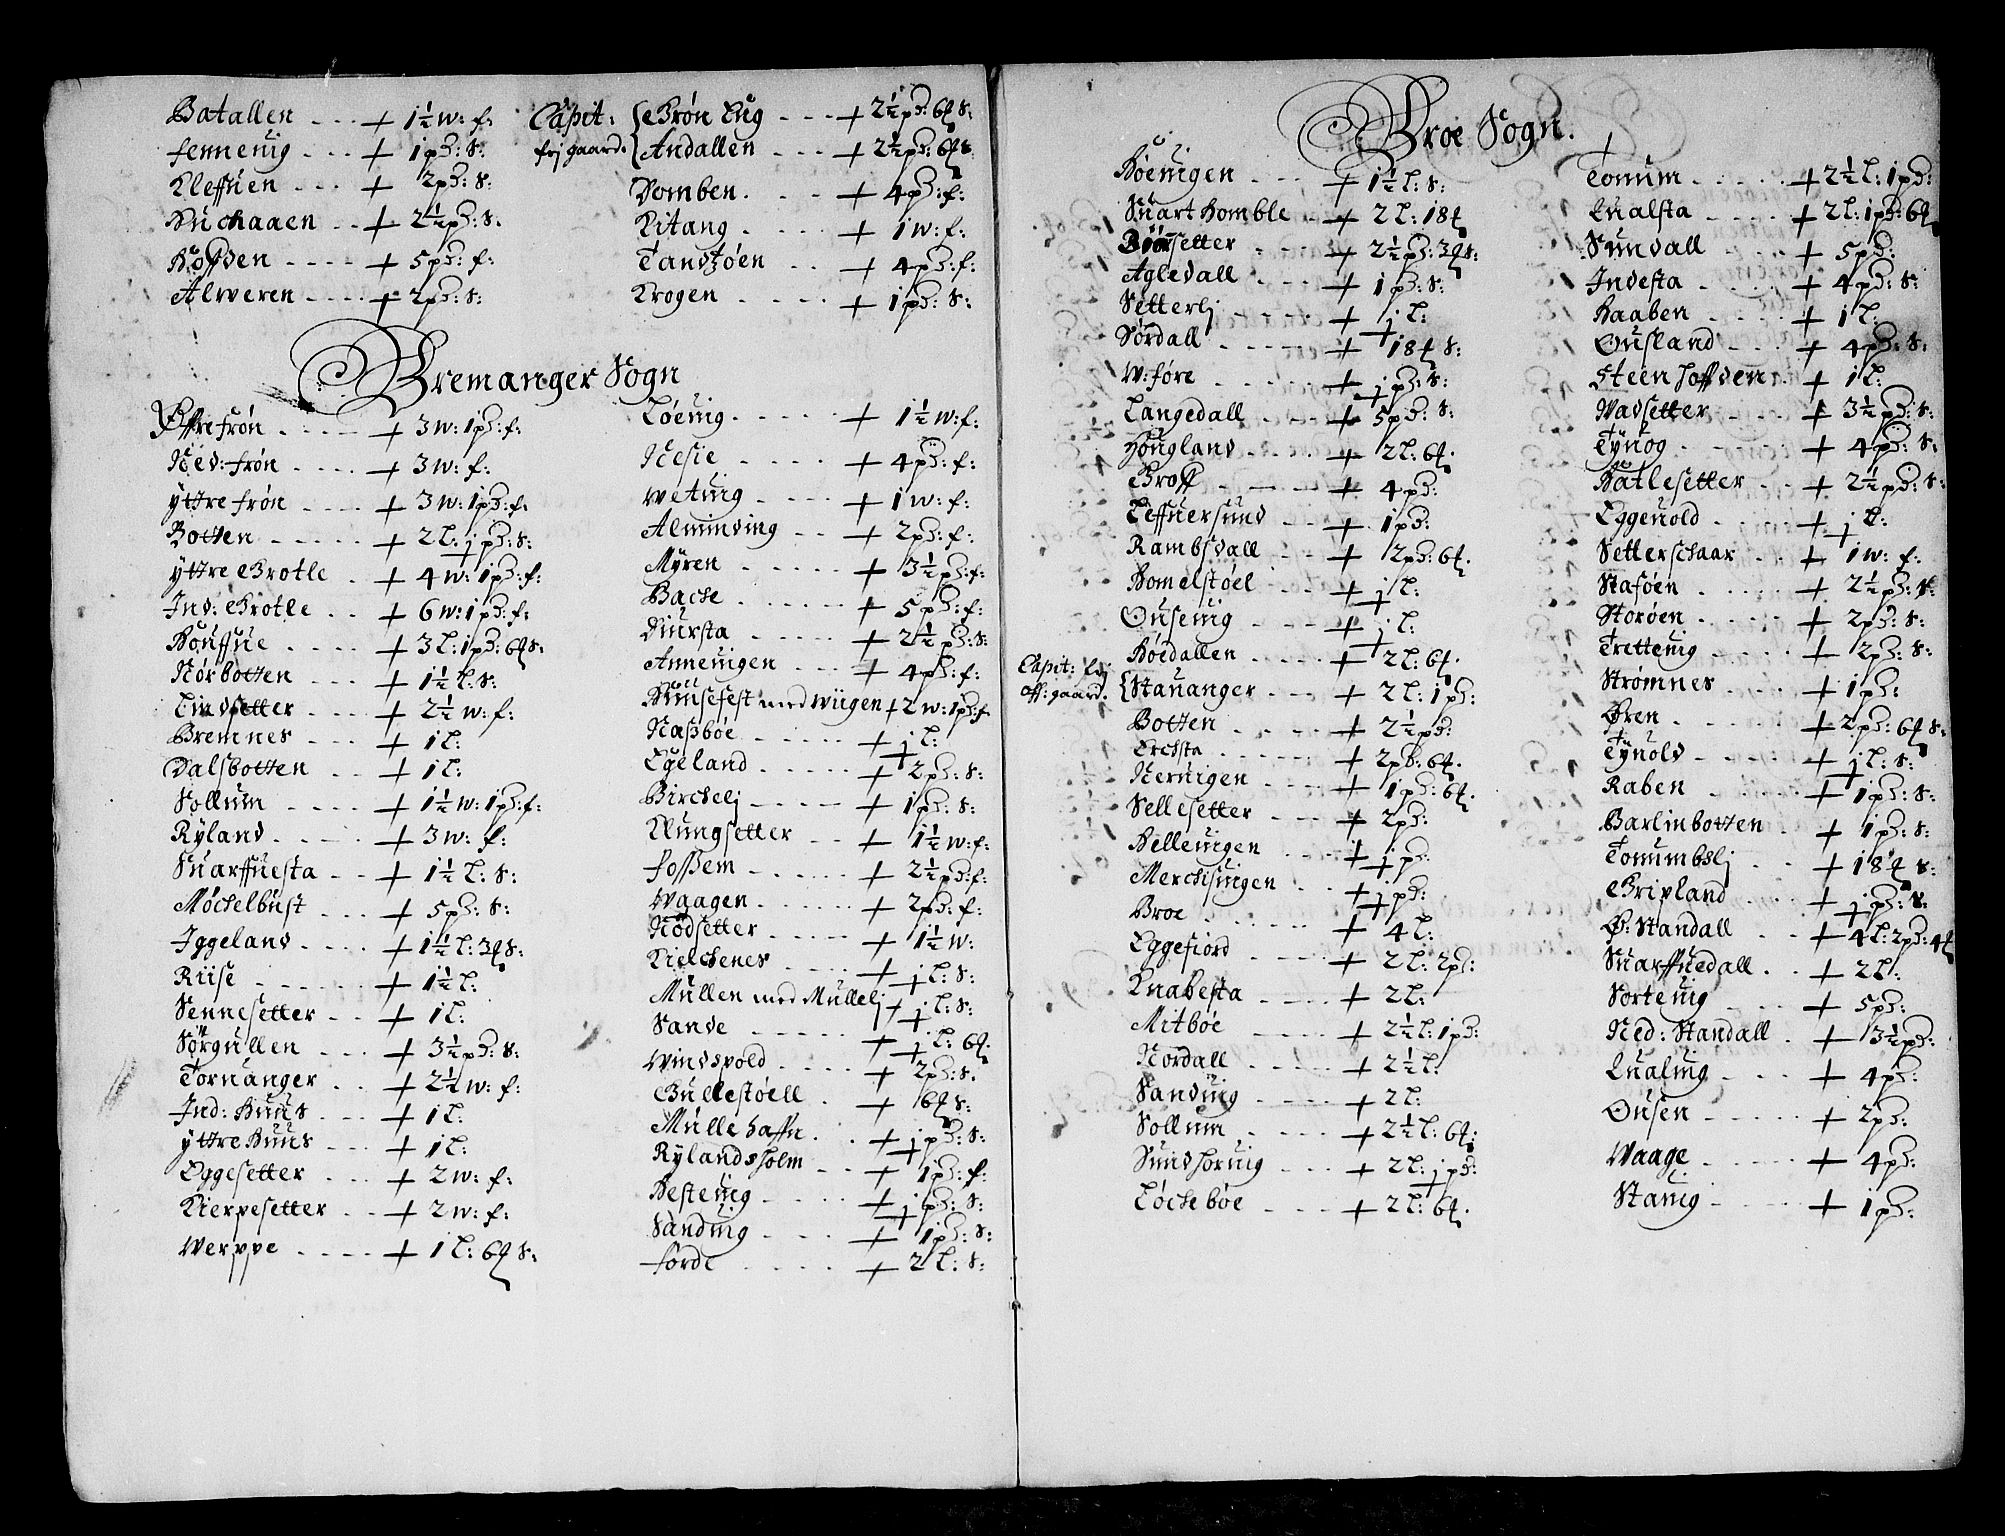 Batallen - - - + 1½ w: f:
Fennevig - - - + 1 pd: s:
Kleffuen - - - + 2 pd: s:
Huchaaen - - + 2½ pd: s:
Hoffden - - - - + 5 pd: f:
Alweren - - - - + 2 pd: s:
Capit: { Grøn Eug - - - + 2½ pd: 6 s:
frj gaard. { Andallen - - - + 2½ pd: 6 s:
Domben. - - - + 4 pd: f:
Kitang - - - - + 1 w: f:
Tansøen - - + 4 pd: f:
Krogen - - - - + 1 pd: s:
Bremanger Sogn
Øffre frøn - - - - + 3 w: 1 pd: f:
Ned: frøn - - - - + 3 w: f:
yttre frøn - - - - + 3 w: 1 pd: f:
Botten - - - - - + 2 l: j pd: s:
yttre Grotle - + 4 w: 1 pd: f:
Ind: Grotle - - + 6 w: 1 pd: f:
Houffue - - - - + 3 l: 1 pd: 6 s:
Nørbotten - - - + 1½ l: s:
Lindsetter - - - + 2½ w: f:
Bremnes - - - + 1 l:
Dalsbotten - - + 1 l:
Sollum - - - - + 1½ w: 1 pd: f:
Ryland - - - - + 3 w: f:
Suarffuesta - - + 1½ l: s:
Møckelbust - - - + 5 pd: s:
Iggeland - - - - + 1½ l: 3 s:
Riise - - - - - + 1½ l:
Sennesetter - - + 1 l:
Sørgullen - - - + 3½ pd: s:
Tornanger - - + 2½ w: f:
Ind: Huus - - - + 1 l:
yttre Huus - - - + 1 l:
Eggesetter - - - + 2 w: f:
Kierpesetter - - + 2 w: f:
Werppe - - - - + 1 l: 6 s:
Løevig - - - - - + 1½ w: f:
Nesie - - - - + 4 pd: f:
Wetuig - - - - + 1 w: f:
Alminding - - + 2 pd: f:
Myren - - - - + 3½ pd: f:
Backe - - - - - + 5 pd: f:
Diursta - - - - + 2½ pd: s:
Anneuigen - - - + 4 pd: f:
Huusefest med Wiigen + 2 w: 1 pd: f
Nassbøe - - - - - + j l:
Egeland - - - - - + 2 pd: s:
Birckelj - - - - - + 1 pd: s:
Klungsetter - - + 1½ w: f:
Fossem - - - - + 2½ pd: f:
Waagen - - - - - + 2 pd: f:
Nødsetter - - - - + 1½ w:
Kielckenes - - - - + j l: s:
Mullen med Mullelj + j l: s:
Sande - - - - - + j l: 6
Windspold - - - - + 2 pd: s.
Gullestøell - + 6 s:
Mulle haffn. - - + j pd: s:
Rylandsholm - - + 1 pd: f:
Hesteuig - - - - + j pd: s:
Sanduig - - - - + 1 pd: s:
Førde - - - - - + 2 l: s:
Broe Sogn.
Høeuigen - - - - + 1½ l: s:
Suart Homble - - + 2 l: 18
setter - - - + 2½ pd: 3 s:
Agledall - - - + 1 pd: s:
Setterlj - - - - + j l:
Sørdall - - - - - + 18 s:
W: føre - - - - + j pd: s:
Langedall - - - + 5 pd: s:
Hougland - - - - + 2 l: 6
Groff - - - - - + 4 pd:
Leffuersund - - + 1 pd:
Rambsdall - - - + 2 pd: 6
Homelstøel - - + j l:
Ouseuig - - - - + j l:
Høedallen - - - + 2 l: 6
Capit: frj
off: gaard. { Stauanger - - - + 2 l: 1 pd:
Botten - - - - + 2½ pd:
Ericksta - - - + 2 pd: 6
Neruigen - - - - + 1 pd: 6
Sellesetter - - - + 2 pd:
Helleuigen - - - + j pd:
Merckisuigen - - + j pd:
Broe - - - - - + 4 l:
Eggefiord - - - - + 2 l: 2 pd:
Knabesta - - - - + 2 l:
Mitbøe - - - - + 2½ l: 1 pd:
Nordall - - - - + 2½ l:
Sanduig - - - - + 2 l:
Sollum - - - - + 2½ l: 6
Sundhoruig - - - + 2 l: j pd:
Løckebøe - - - - + 2 l: 6
Tonum - - - - - + 2½ l: 1 pd:
Qualsta - - - - + 2 l: 1 pd: 6
Sundall - - - - + 5 pd:
Indesta - - - - + 4 pd: s:
Haaben - - - - + 1 l:
Ousland - - - - + 4 pd: s:
Steen hoffden - + 1 l:
Wadsetter - - - - + 3½ pd: s:
Tynog - - - - - + 4 pd: s:
Hatlesetter - - - + 2½ pd: s:
Eggeuold - - - - + j l:
Setterschaar - - + 1 w: f:
Staføen - - - - - + 2½ pd: s:
Storøen - - - - - + 2 pd: s:
Tretteuig - - - - + 2 pd: s:
Strømnes - - - - + 1 pd:
Øren - - - - - - + 2 pd: 6 s:
Tynold - - - - - + j l: s:
Raben - - - - - + 1 pd: s:
Barlinbotten - + 1 pd: s:
Tonumbslj - - + 18 s:
Gripland - - - + j pd: s:
Ø: Standall - - + 4 l: 2 pd: 4
Suarffuedall - - + 2 l:
Sorteuig - - - - + 5 pd:
Ned: Standall - + 3½ pd:
Qualuig - - - - + 4 pd:
Ousen - - - - - + 2 pd:
Waage - - - - - + 4 pd:
Stauig - - - - - + 1 pd: